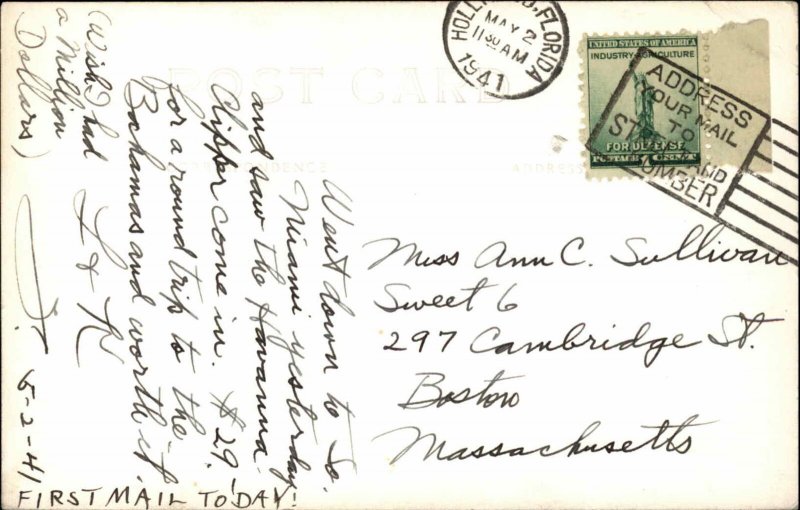 POST CARD
CORRESPONDENCE
ADDRESS
HOLLYWOOD, FLORIDA
MAY 2
11 30 AM
1941
UNITED STATES OF AMERICA
INDUSTRY AGRICULTURE
FOR DEFENSE
POSTAGE 1 CENT
ADDRESS
YOUR MAIL
TO
STREET AND
NUMBER
Miss Ann C. Sullivan
Sweet 6
297 Cambridge St.
Boston
Massachusetts
Went down to So.
Miami yesterday
and saw the Havanna
Clipper come in. $29.
for a round trip to the
Bahamas and worth it.
(Wish I had
a Million
Dollars)
L & K
J.
5-2-41
FIRST MAIL TODAY!